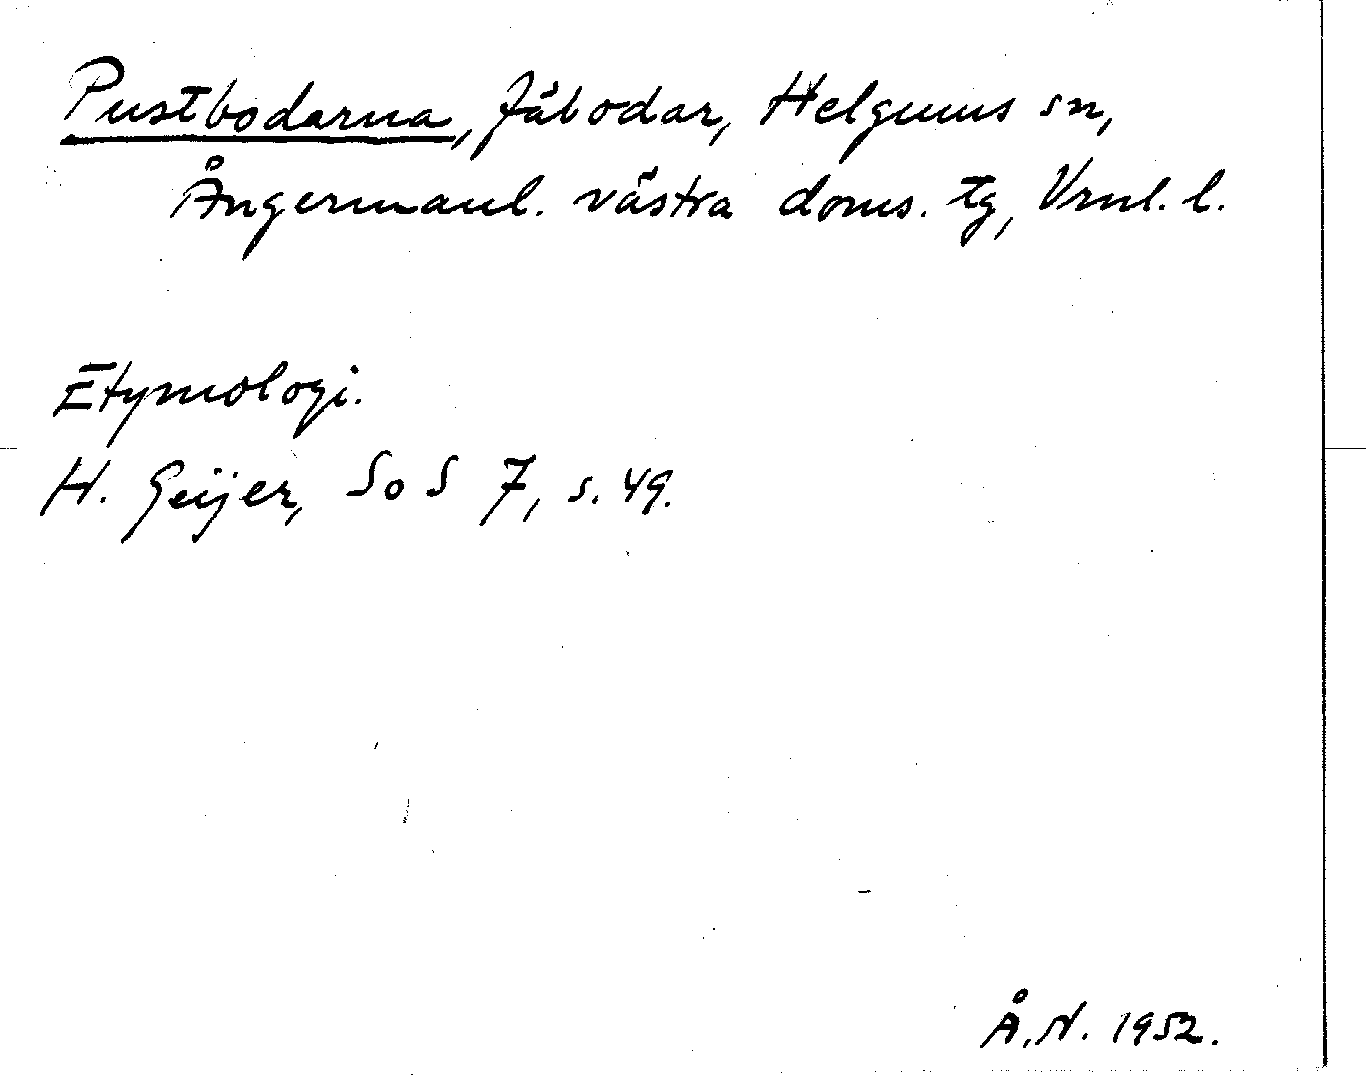 Pustbodarna, fäbodar, Helgums sn,
Ångermanl. västra doms. tg, Vrnl. l.
Etymologi.
H. Geijer, SoS 7, s. 49.
Å.N. 1952.